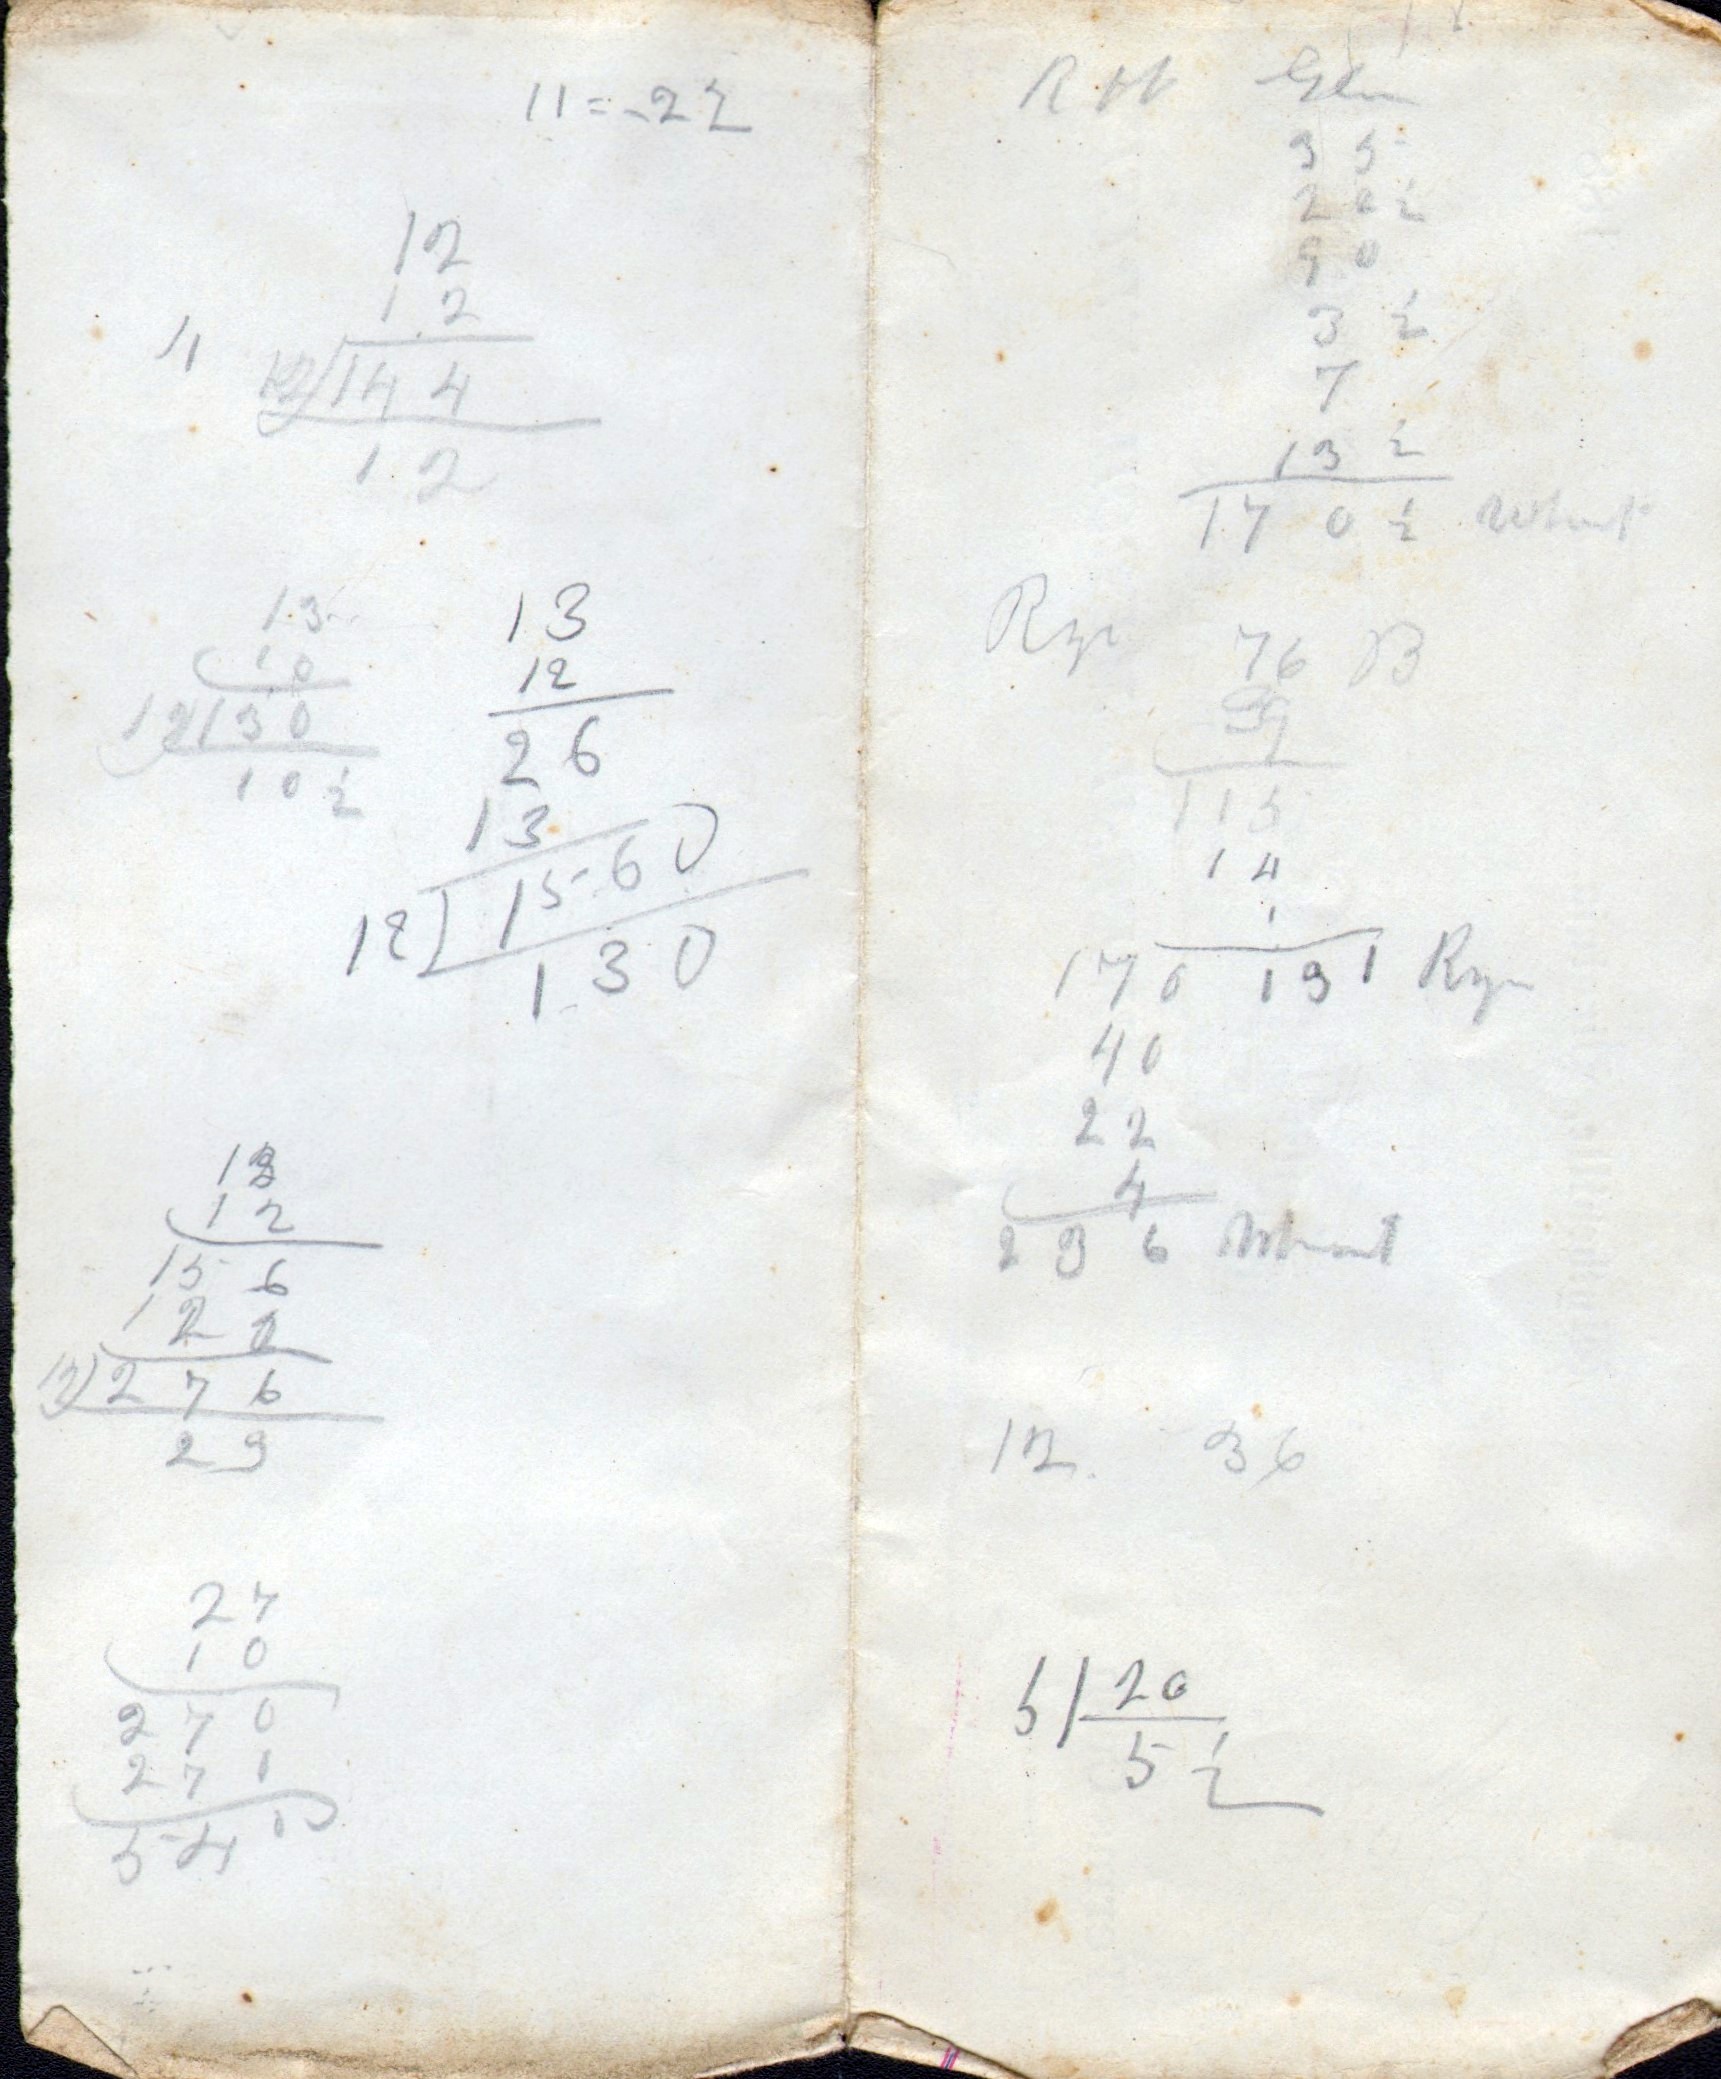 11 = 22
12
12
11 12)144
12
13
10
12)130
10 1/2
13
12
26
13
1560
12)
130
13
12
156
120
12)276
23
27
10
270
271
540
35
20 1/2
90
3 1/2
7
13 1/2
170 1/2 Wheat
Rye 76 B
39
115
14
1
170 131 Rye
40
22
4
236 Wheat
12 36
5)26
5 1/2